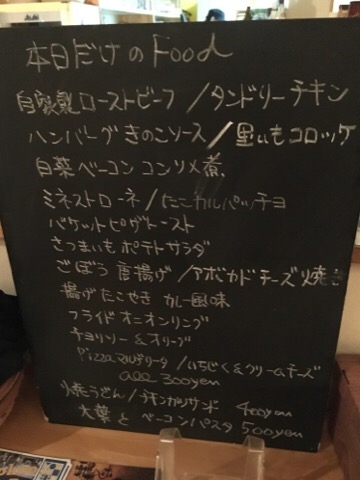 本日だけのFood
自家製ローストビーフ/タンドリーチキン
ハンバーグきのこソース/里いもコロッケ
白菜ベーコンコンソメ煮
ミネストローネ/たこカルパッチョ
バケットピザトースト
さつまいもポテトサラダ
ごぼう唐揚げ/アボカドチーズ焼き
揚げたこやきカレー風味
フライドオニオンリング
チョリソー&オリーブ
Pizzaマルゲリータ/いちじく&クリームチーズ
all 300yen
焼うどん/チキンカツサンド 400yen
大葉とベーコンパスタ 500yen